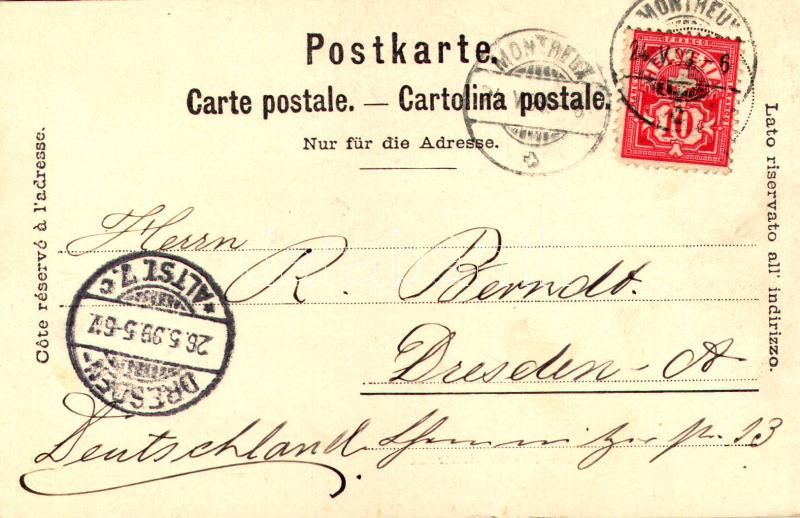 Postkarte.
Carte postale. — Cartolina postale.
Nur für die Adresse.
Côte réservé à l'adresse.
Lato riservato all' indirizzo.
MONTREUX
MONTREUX
FRANCO
HELVETIA
10
Herrn
R. Berndt.
Dresden-A
Deutschland. str. 13
DRESDEN-
26.5.99.5-6N.
*ALTST. 7.c